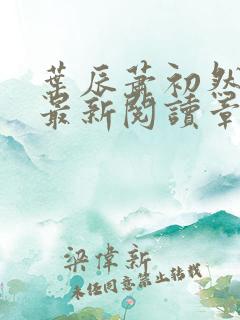 葉辰蕭初然
最新閱讀章
梁偉新
未經同意禁止轉載